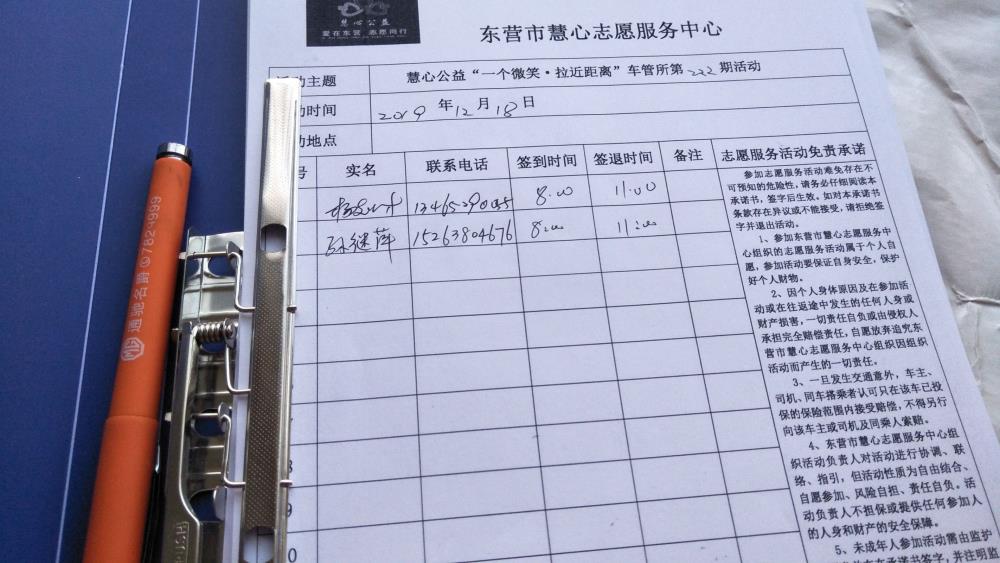 慧心公益
爱在东营 志愿同行
东营市慧心志愿服务中心
动主题 慧心公益“一个微笑·拉近距离”车管所第222期活动
动时间 2019年12月18日
动地点
号 实名 联系电话 签到时间 签退时间 备注 志愿服务活动免责承诺
8:00 11:00
孙继萍 15263804676 8:00 11:00
8
9
0
参加志愿服务活动难免存在不
可预知的危险性，请务必仔细阅读本
承诺书，签字后生效。如对本承诺书
条款存在异议或不能接受，请拒绝签
字并退出活动。
1、参加东营市慧心志愿服务中
心组织的志愿服务活动属于个人自
愿，参加活动要保证自身安全，保护
好个人财物。
2、因个人身体原因及在参加活
动或在往返途中发生的任何人身或
财产损害，一切责任自负或由侵权人
承担完全赔偿责任，自愿放弃追究东
营市慧心志愿服务中心组织因组织
活动而产生的一切责任。
3、一旦发生交通意外，车主、
司机、同车搭乘者认可只在该车已投
保的保险范围内接受赔偿，不得另行
向该车主或司机及同乘人索赔。
4、东营市慧心志愿服务中心组
织活动负责人对活动进行协调、联
络、指引，但活动性质为自由结合、
自愿参加、风险自担、责任自负。活
动负责人不担保或提供任何参加人
的人身和财产的安全保障。
5、未成年人参加活动需由监护
承诺书签字，并注明监
MG 通驰名爵 7824999
PUSH